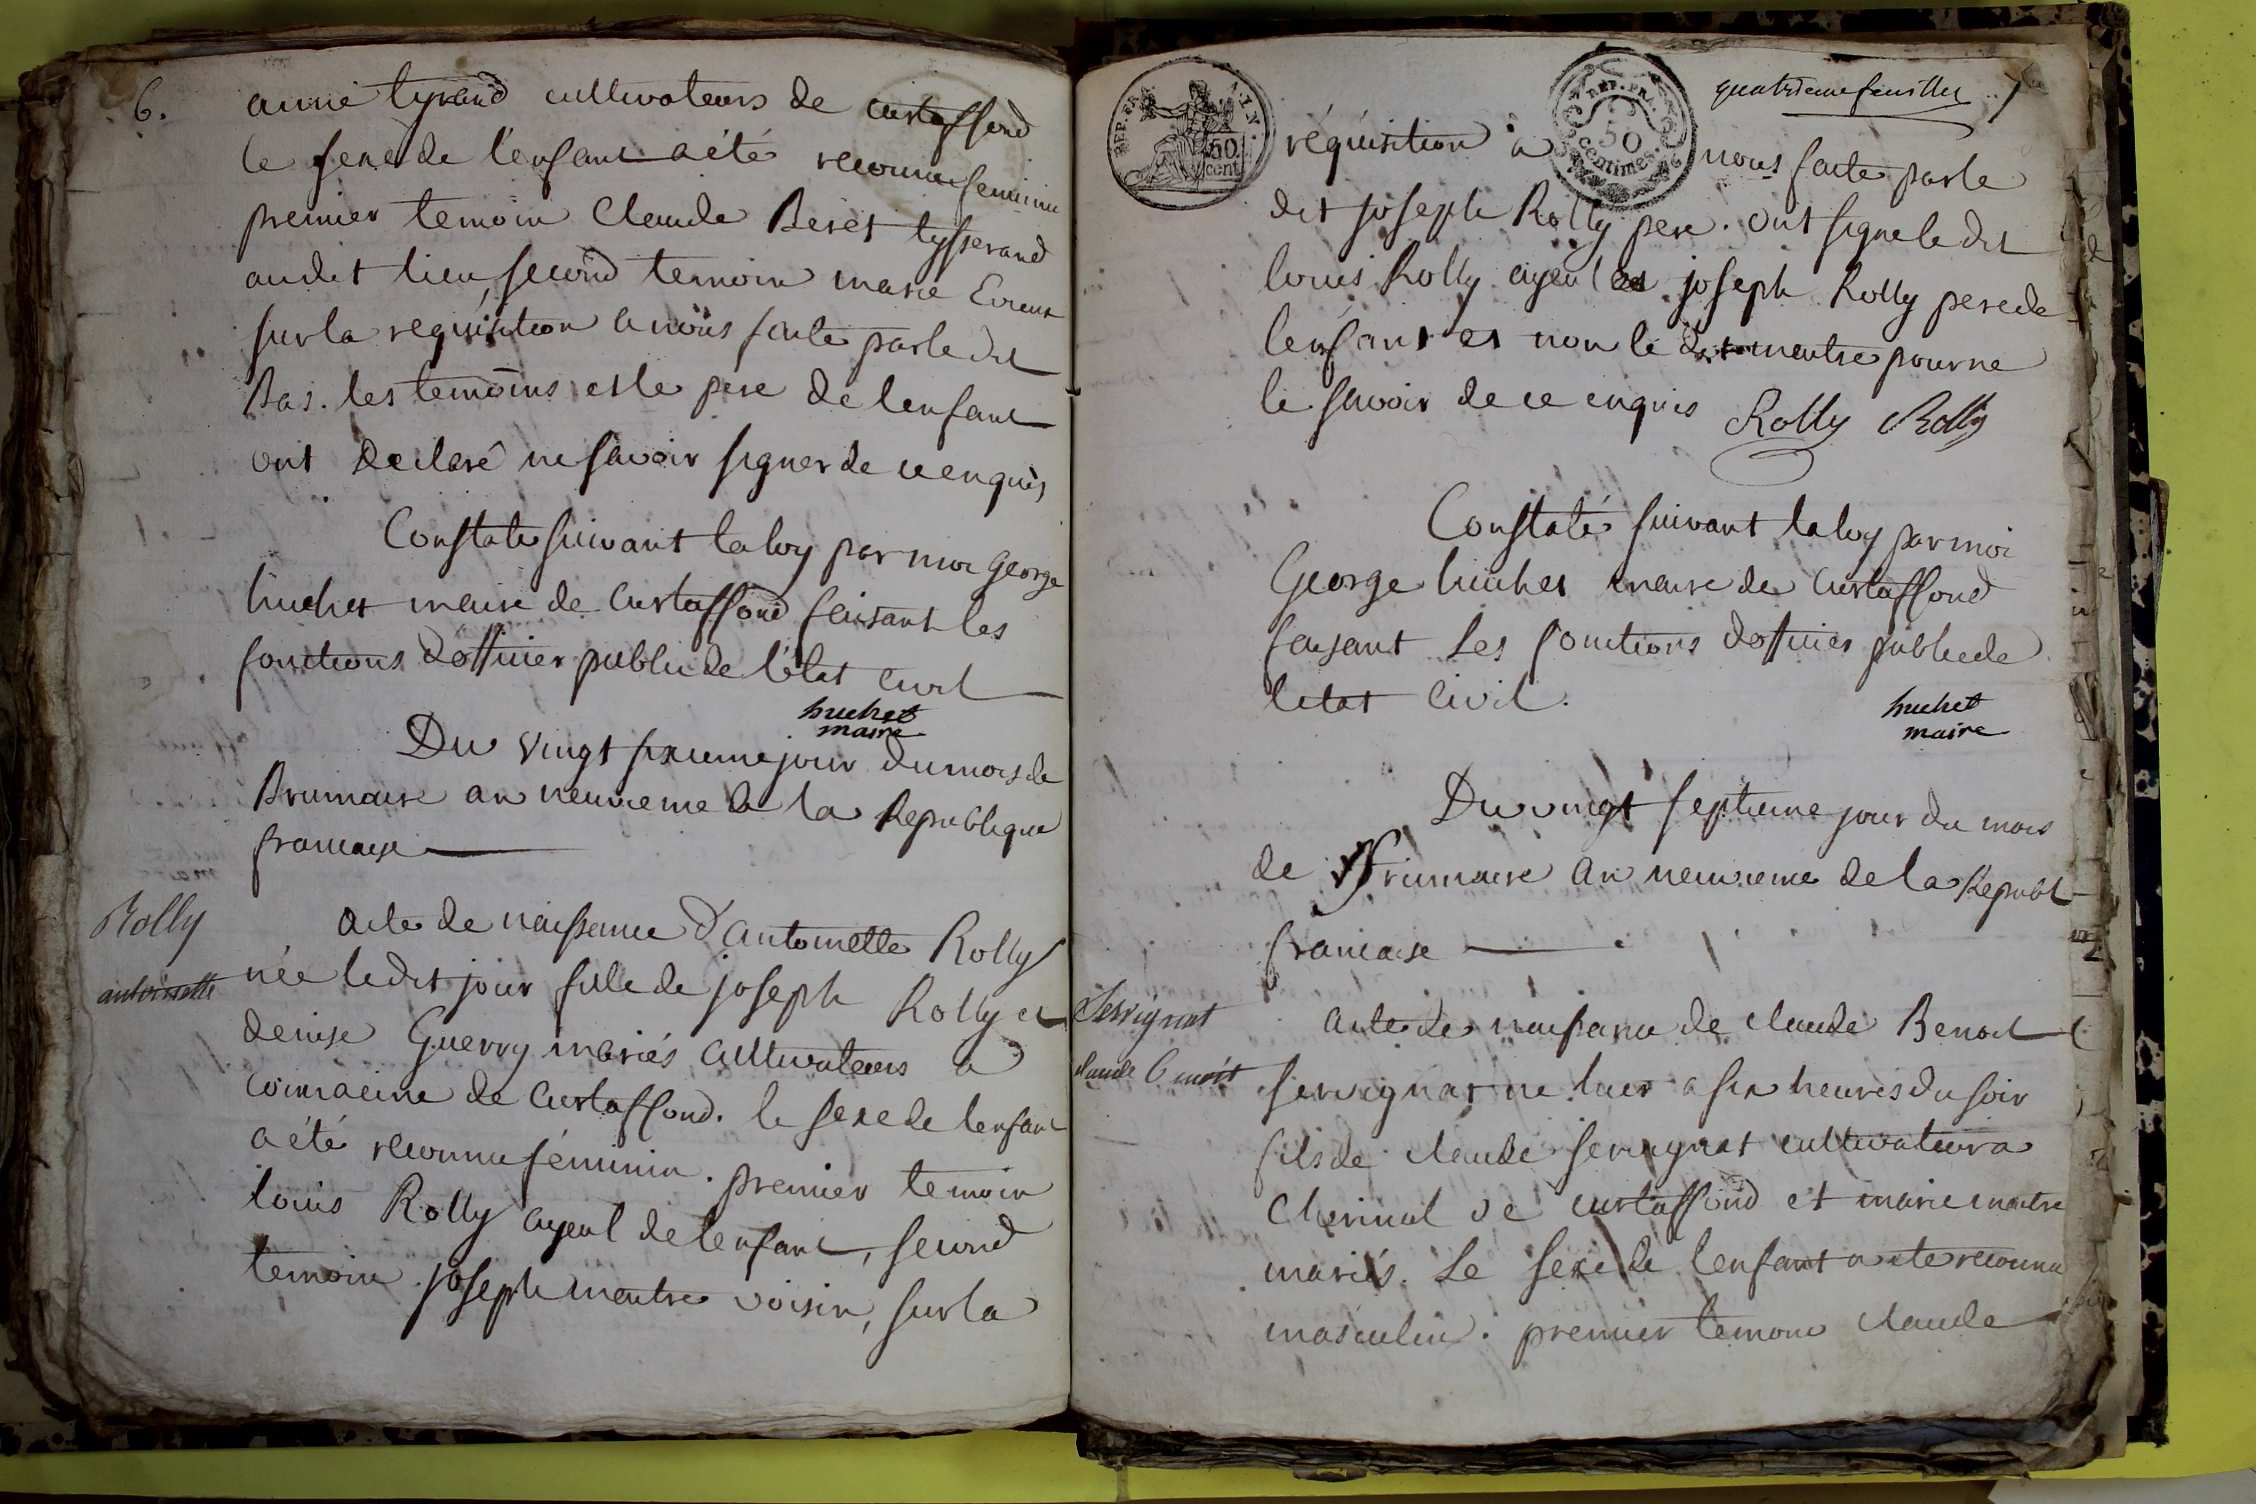 6.
anne tyrand cultivateurs de curtaffond
le sexe de l'enfant a été reconnu feminin
premier temoin Claude Beret tysserand
audit lieu, second temoin marie
sur la requisition a nous faite par le dit
Bas. les temoins et le pere de l'enfant
ont declaré ne savoir signer de ce enquis
Constaté suivant la loy par moi george
huchet maire de Curtaffond faisant les
fonctions d'officier public de l'état civil
huchet
maire
Du vingt sixieme jour du mois de
Brumaire an neuvieme de la Republique
francaise
Rolly
antoinette
acte de naissance d'antoinette Rolly
née ledit jour fille de joseph Rolly et
denise Guerry mariés cultivateurs a
de Curtaffond. le sexe de lenfant
a été reconnu féminin. premier temoin
louis Rolly ayeul de lenfant, second
temoin joseph mentre voisin, sur la
quatrieme feuillet 7
REP. FRA. NAT.
50 cent
REP. FRA.
50
centimes
réquisition a nous faite par le
dit joseph Rolly pere. ont signe le dit
louis Rolly ayeul et joseph Rolly pere de
lenfant et non le dit mentre pour ne
le savoir de ce enquis Rolly Rolly
Constaté suivant la loy par moi
George huchet maire de Curtaffond
faisant les fonctions d'officier public de
letat civil.
huchet
maire
Du vingt septieme jour du mois
de frumaire an neuvieme de la Republ
francaise
Servignat
claude benoit
acte de naissance de claude Benoit
servignat ne hier a six heures du soir
fils de claude servignat cultivateur a
Cherinal de curtaffond et marie mentre
mariés. Le sexe de lenfant a ete reconnu
masculin. premier temoin claude